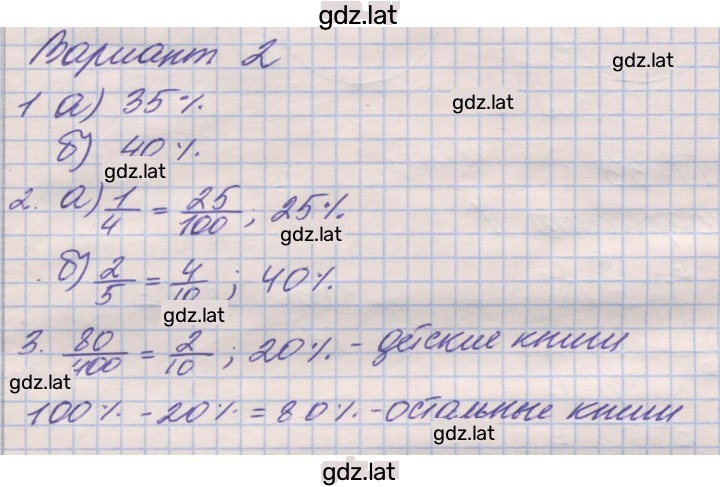 gdz.lat
Вариант 2
gdz.lat
1 а) 35%
gdz.lat
б) 40%
gdz.lat
2. а) 1/4 = 25/100; 25%
gdz.lat
б) 2/5 = 4/10; 40%
gdz.lat
3. 80/400 = 2/10; 20% - дейские книги
gdz.lat
100% - 20% = 80% - остальные книги
gdz.lat
gdz.lat